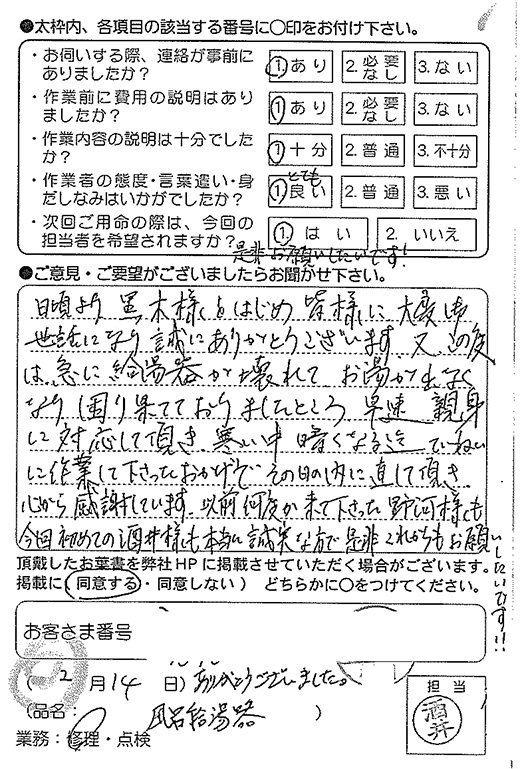 ●太枠内、各項目の該当する番号に○印をお付け下さい。
・お伺いする際、連絡が事前に
ありましたか？
①あり 2.必要なし 3.ない
・作業前に費用の説明はあり
ましたか？
①あり 2.必要なし 3.ない
・作業内容の説明は十分でした
か？
①十分 2.普通 3.不十分
・作業者の態度・言葉遣い・身
だしなみはいかがでしたか？
とても
①良い 2.普通 3.悪い
・次回ご用命の際は、今回の
担当者を希望されますか？
①はい 2.いいえ
是非お願いしたいです！
●ご意見・ご要望がございましたらお聞かせ下さい。
日頃より黒木様をはじめ皆様に大変お
世話になり誠にありがとうございます。又、この度
は急に給湯器が壊れてお湯が出なく
なり困り果てておりましたところ早速親身
に対応して頂き、寒い中暗くなる迄ていねい
に作業して下さったおかげでその日の内に直して頂き
心から感謝しています。以前何度か来て下さった野河様も
今回初めての酒井様も本当に誠実な方で是非これからもお願い
したいです!!
頂戴したお葉書を弊社HPに掲載させていただく場合がございます。
掲載に（同意する・同意しない） どちらかに○をつけてください。
お客さま番号
（2月14日）ありがとうございました。
（品名： 風呂給湯器 ）
業務：修理・点検
担当
酒井